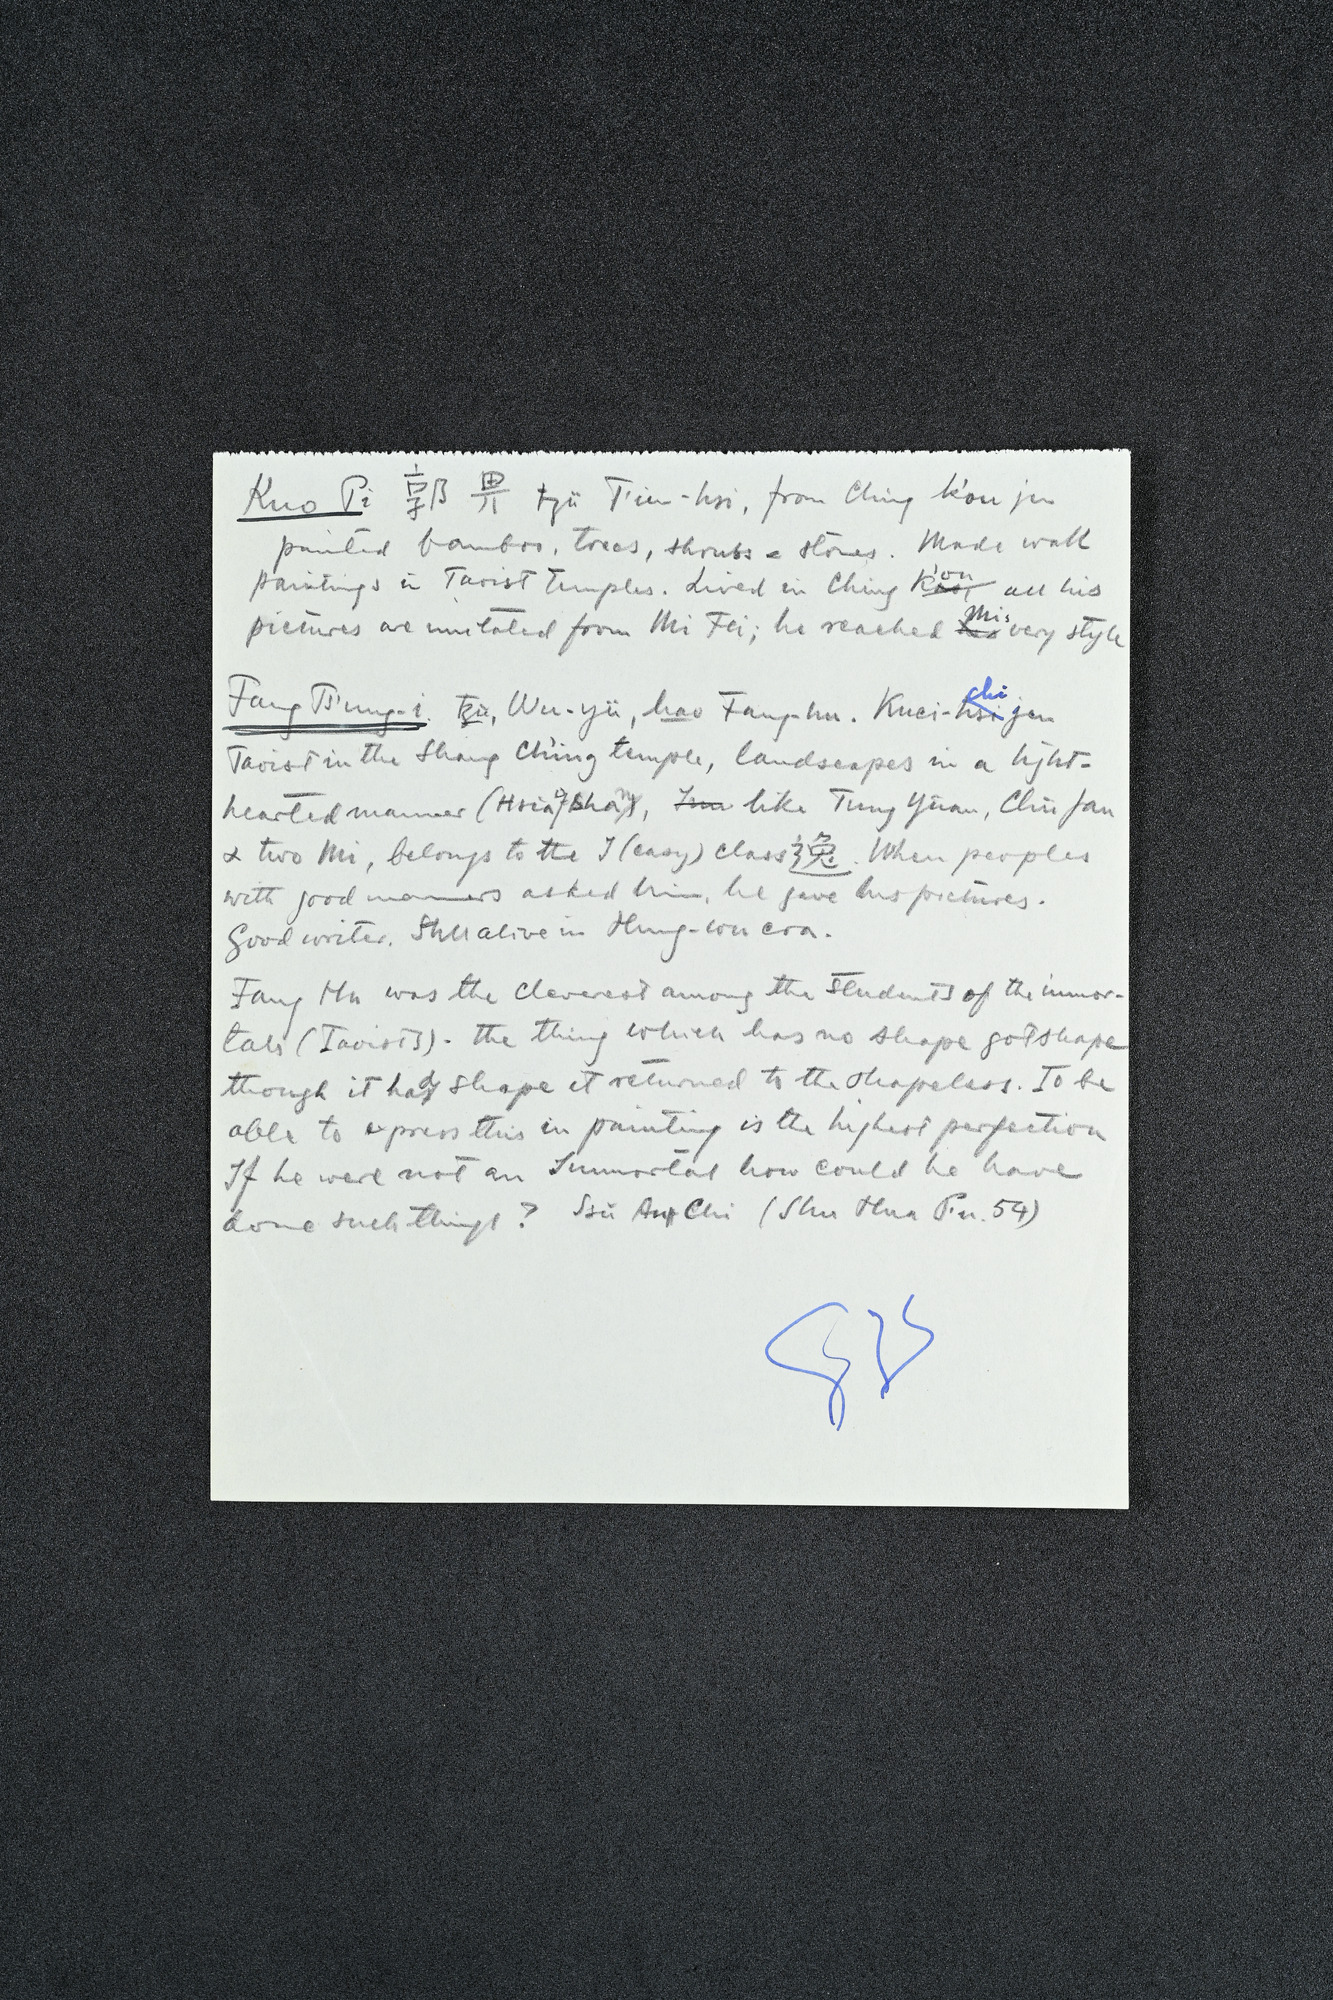 Kuo Pi 郭畀 tzŭ T'ien-hsi, from Ching k'ou jen
painted bamboo, trees, shrubs & stones. Made wall
paintings in Taoist temples. Lived in Ching K'ou all his
pictures are imitated from Mi Fei; he reached Mi's very style
Fang Ts'ung-i tzŭ, Wu-yü, hao Fang-hu. Kuei-chi jen
Taoist in the Shang Ch'ing temple, landscapes in a light-
hearted manner (Hsia), like Tung Yüan, Chü jan
& two Mi, belongs to the I (easy) class 逸. When peoples
with good manners asked him, he gave his pictures.
Good writer. Still alive in Hung-wu era.
Fang Hu was the cleverest among the students of the immor-
tals (Taoists). The thing which has no shape got shape
though it had shape it returned to the shapeless. To be
able to express this in painting is the highest perfection
If he were not an Immortal how could he have
done such things? Ssŭ An Chi (Shu Hua P'u. 54)